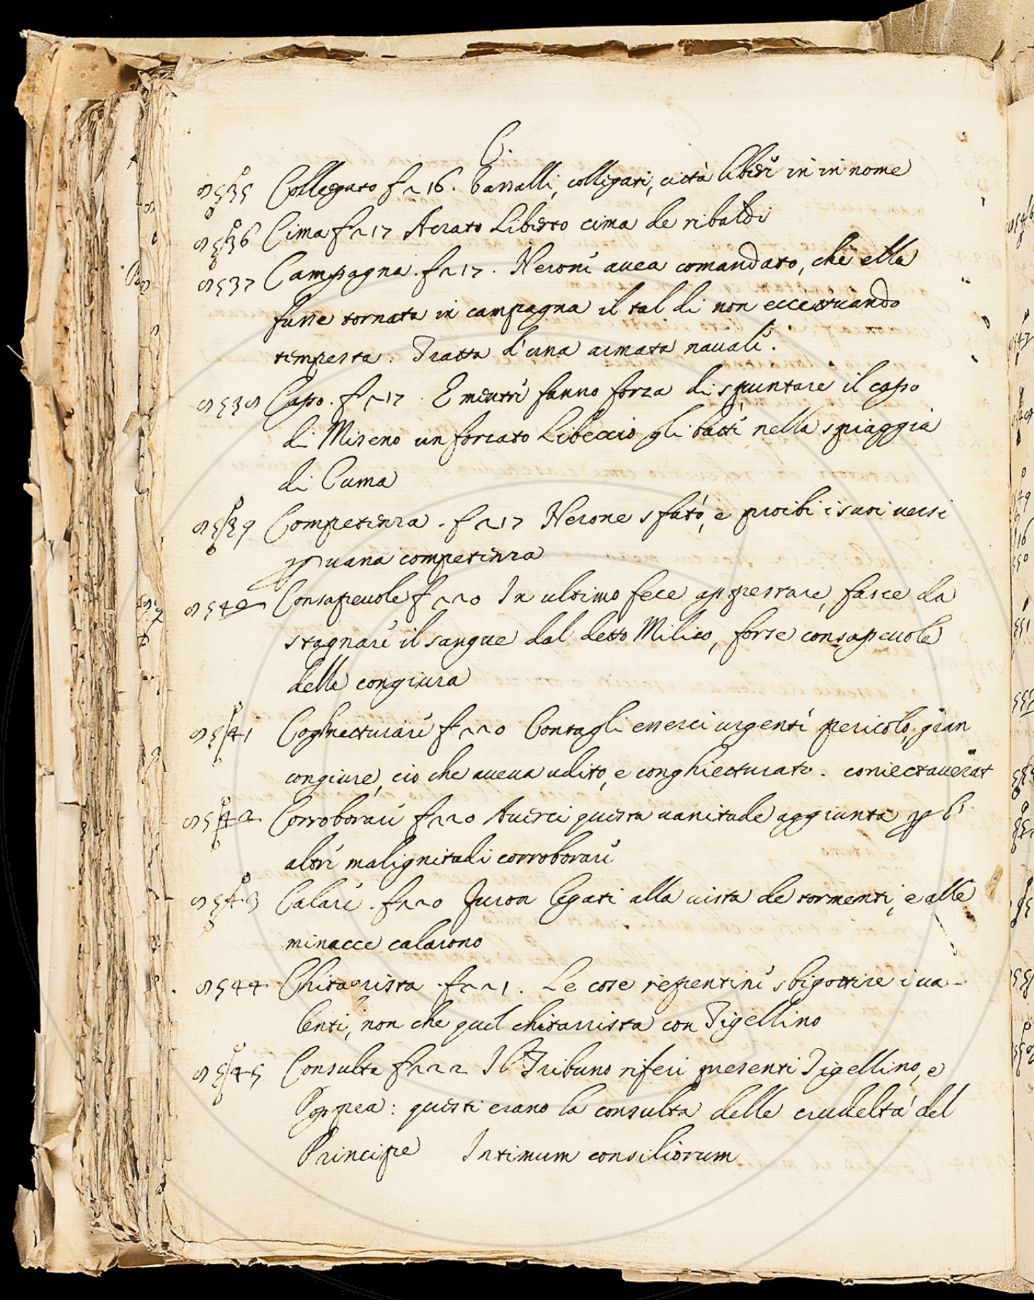 C.
8535 Collegato fr 16. Vassalli, collegati, città liberi in in nome
8536 Cima fr 17 Acrato Liberto cima de ribaldi
8537 Campagna. fr 17. Neroni avea comandato, che ella
fusse tornata in campagna il tal di non eccettuando
tempesta. Tratta d'una armata navali.
8538 Capo. fr 17. E mentri fanno forza di spuntare il capo
di Miseno un forzato Libeccio gli batti nella spiaggia
di Cuma
8539 Competenza. fr 17 Nerone sfatò, e proibi i suoi versi
p vana competenza
8540 Consapevole fr 20 In ultimo fece appressare, fasce da
stagnari il sangue dal detto Milico, forse consapevole
della congiura
8541 Coghietturari fr 20 Contagli esserci urgenti pericolo, gran
congiure, cio che aveva udito, e conghietturato. coniectaverat
8542 Corroborari fr 20 Averci questa vanitade aggiunta p l'
altri malignitadi corroborari
8543 Calari. fr 20 Furon legati alla vista de tormenti, e alle
minacce calarono
8544 Chitarrista fr 21. Le cose repentini sbigottire i va-
lenti, non che quel chitarrista con Tigellino
8545 Consulta fr 22 Il Tribuno riferi presenti Tigellino, e
Poppea: questi erano la consulta delle crudeltà del
Principe Intimum consiliorum